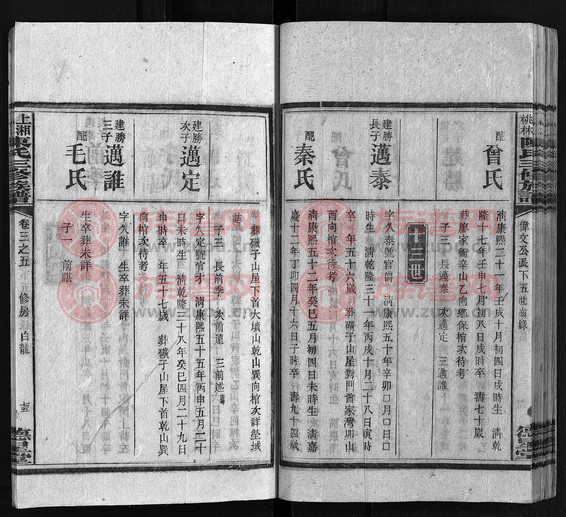 桃林陳氏三修族譜
偉文公派下五世齒錄
配
曾氏
清康熙二十一年壬戌十月初四日戌時生 清乾
隆十七年壬申七月初八日戌時卒 壽七十歲
葬廖家衝辛山乙向總保棺次待考
子三 長邁泰 次邁定 三邁誰
十三世
建勝
長子
邁泰
字久泰號官尚 清康熙五十年辛卯 月 日
時生 清乾隆三十一年丙戌十月二十八日寅時
卒 年五十六歲 葬磯子山屋對門首家灣卯山
酉向棺次待考
配
秦氏
清康熙五十二年癸巳五月初四日未時生 清嘉
慶十二年丁卯四月十六日子時卒 壽九十四歲
葬磯子山屋下首大墳山乾山巽向棺次詳塋域
誌
子三 長前季 次前 三前
建勝
次子
邁定
字久定號官才 清康熙五十五年丙申五月二十
日未時生 清乾隆三十八年癸巳四月二十九日
時卒 年五十七歲 葬磯子山屋下首乾山巽
向棺次待考
建勝
三子
邁誰
字久誰 生卒葬未詳
配
毛氏
生卒葬未詳
子一 前
上湘陳氏三修族譜
卷三之五
修房
白龍
德星堂